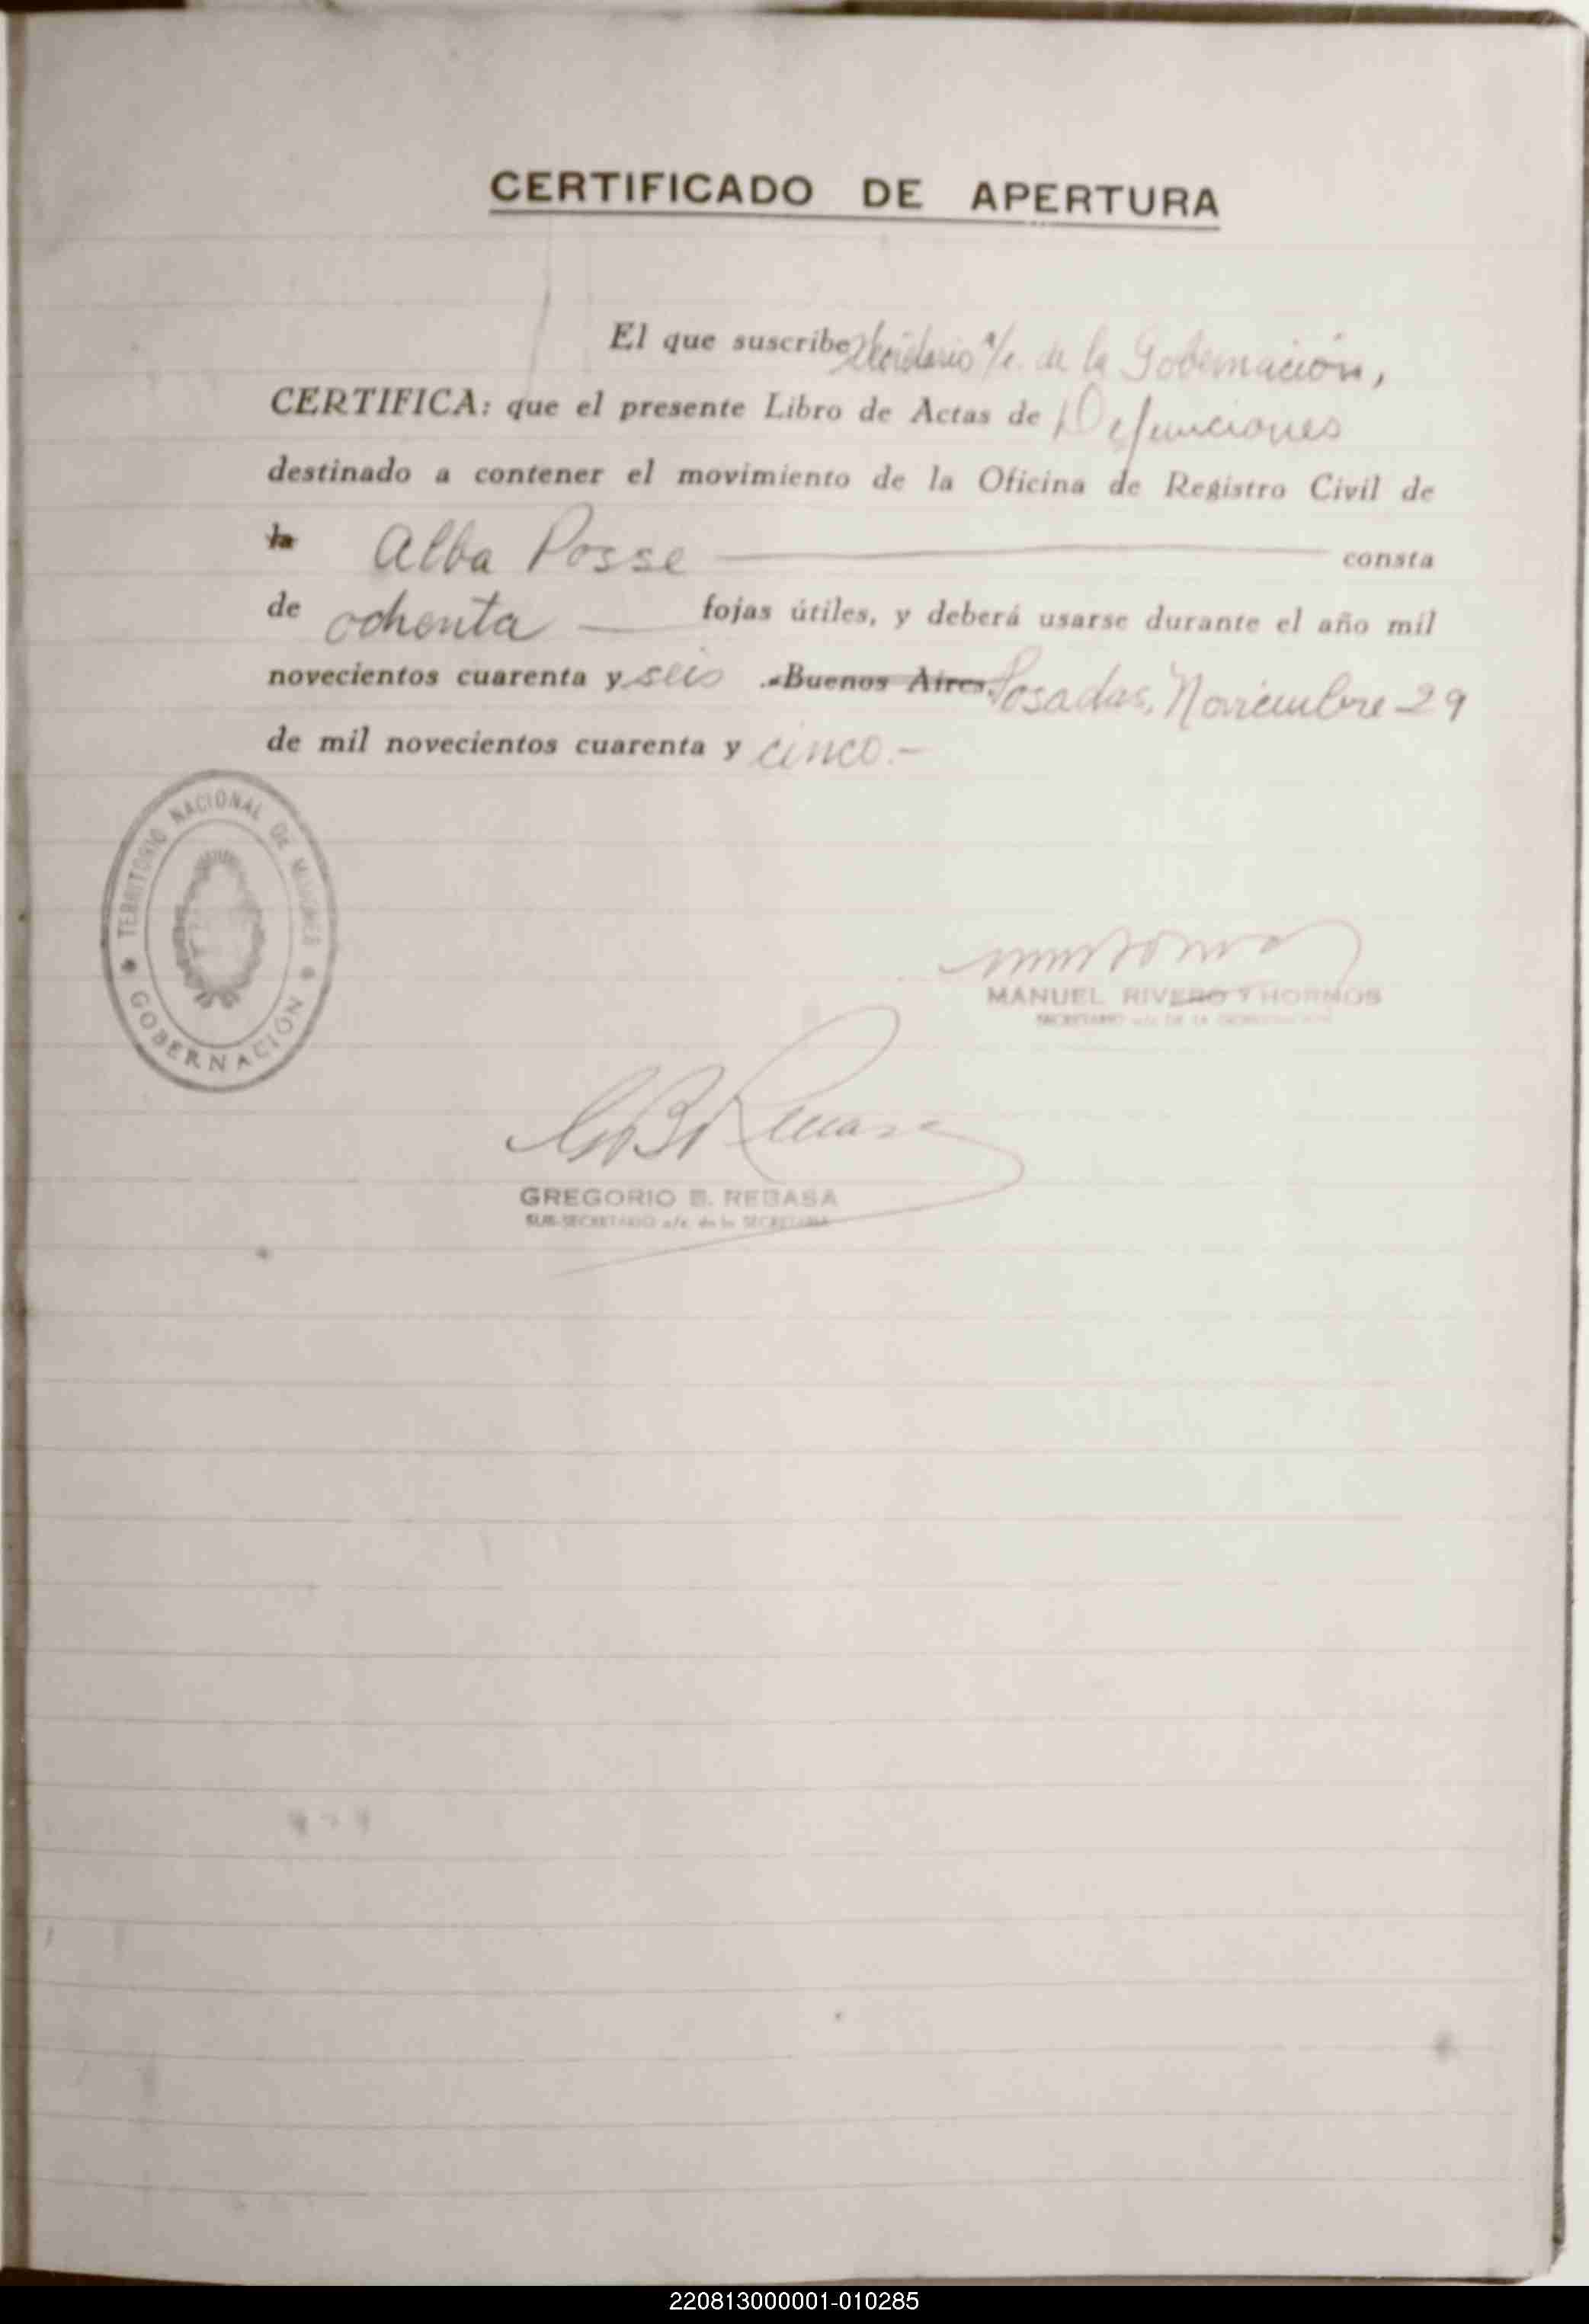 CERTIFICADO DE APERTURA
El que suscribe Secretario a/c. de la Gobernación,
CERTIFICA: que el presente Libro de Actas de Defunciones
destinado a contener el movimiento de la Oficina de Registro Civil de
la Alba Posse consta
de ochenta fojas útiles, y deberá usarse durante el año mil
novecientos cuarenta y seis .-Buenos Aires, Posadas, Noviembre 29
de mil novecientos cuarenta y cinco.-
TERRITORIO NACIONAL DE MISIONES
GOBERNACIÓN
MANUEL RIVERO Y HORMOS
SECRETARIO a/c DE LA GOBERNACION
GREGORIO B. REBASA
SUB-SECRETARIO a/c. de la SECRETARIA
220813000001-010285